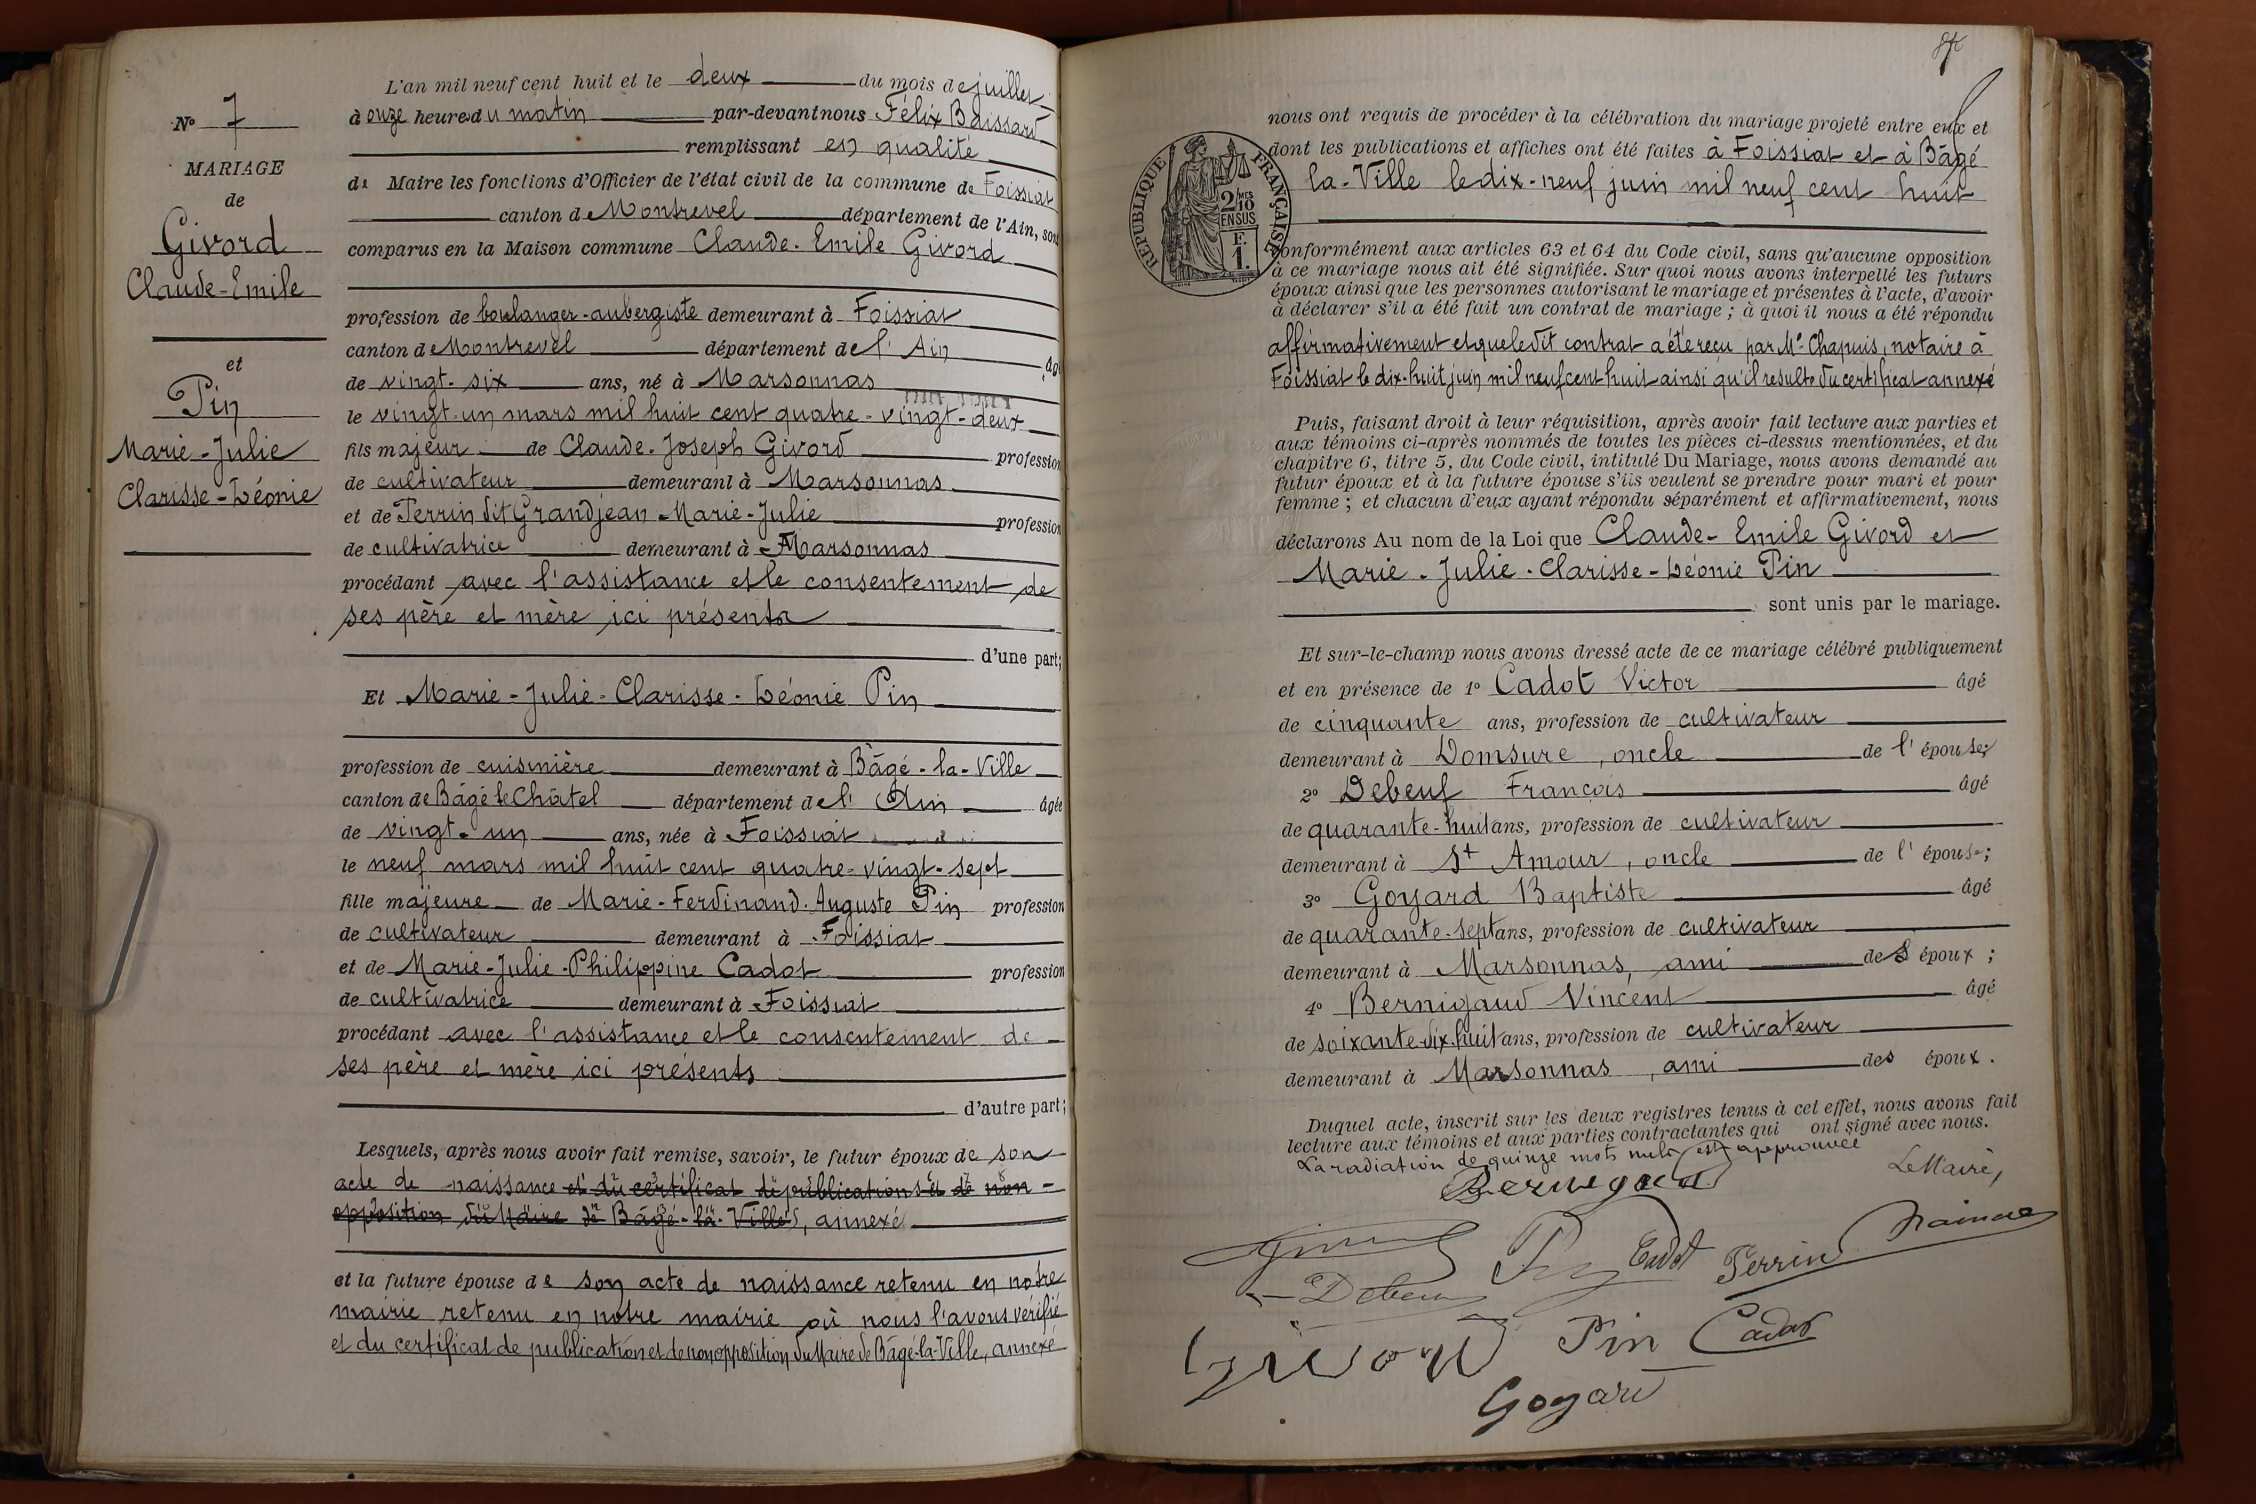 N° 7
MARIAGE
de
Givord
Claude-Emile
et
Pin
Marie-Julie
Clarisse-Léonie
L'an mil neuf cent huit et le deux du mois de juillet
à onze heures du matin par-devant nous Félix Boissard
remplissant en qualité
de Maire les fonctions d'Officier de l'état civil de la commune de Foissiat
canton de Montrevel département de l'Ain, sont
comparus en la Maison commune Claude-Emile Givord
profession de boulanger-aubergiste demeurant à Foissiat
canton de Montrevel département de l'Ain âgé
de vingt-six ans, né à Marsonnas
le vingt-un mars mil huit cent quatre-vingt-deux
fils majeur de Claude-Joseph Givord profession
de cultivateur demeurant à Marsonnas
et de Perrin dit Grandjean Marie-Julie profession
de cultivatrice demeurant à Marsonnas
procédant avec l'assistance et le consentement de
ses père et mère ici présents
d'une part;
Et Marie-Julie-Clarisse-Léonie Pin
profession de cuisinière demeurant à Bâgé-la-Ville
canton de Bâgé le Châtel département de l'Ain âgée
de vingt-un ans, née à Foissiat
le neuf mars mil huit cent quatre-vingt-sept
fille majeure de Marie-Ferdinand-Auguste Pin profession
de cultivateur demeurant à Foissiat
et de Marie-Julie-Philippine Cadot profession
de cultivatrice demeurant à Foissiat
procédant avec l'assistance et le consentement de
ses père et mère ici présents
d'autre part;
Lesquels, après nous avoir fait remise, savoir, le futur époux de son
acte de naissance et du certificat de publications et de non-
opposition du Maire de Bâgé-la-Ville, annexé
et la future épouse de son acte de naissance retenu en notre
mairie retenu en notre mairie où nous l'avons vérifié
et du certificat de publication et de non opposition du Maire de Bâgé-la-Ville, annexé
nous ont requis de procéder à la célébration du mariage projeté entre eux et
dont les publications et affiches ont été faites à Foissiat et à Bâgé
la-Ville le dix-neuf juin mil neuf cent huit
RÉPUBLIQUE FRANÇAISE
2/10 EN SUS
F. 1.
conformément aux articles 63 et 64 du Code civil, sans qu'aucune opposition
à ce mariage nous ait été signifiée. Sur quoi nous avons interpellé les futurs
époux ainsi que les personnes autorisant le mariage et présentes à l'acte, d'avoir
à déclarer s'il a été fait un contrat de mariage; à quoi il nous a été répondu
affirmativement et que ledit contrat a été reçu par Me Chapuis, notaire à
Foissiat le dix-huit juin mil neuf cent huit ainsi qu'il résulte du certificat annexé
Puis, faisant droit à leur réquisition, après avoir fait lecture aux parties et
aux témoins ci-après nommés de toutes les pièces ci-dessus mentionnées, et du
chapitre 6, titre 5, du Code civil, intitulé Du Mariage, nous avons demandé au
futur époux et à la future épouse s'ils veulent se prendre pour mari et pour
femme; et chacun d'eux ayant répondu séparément et affirmativement, nous
déclarons Au nom de la Loi que Claude-Emile Givord et
Marie-Julie-Clarisse-Léonie Pin
sont unis par le mariage.
Et sur-le-champ nous avons dressé acte de ce mariage célébré publiquement
et en présence de 1° Cadot Victor âgé
de cinquante ans, profession de cultivateur
demeurant à Domsure, oncle de l'épouse;
2° Debeuf François âgé
de quarante-huit ans, profession de cultivateur
demeurant à St Amour, oncle de l'épouse;
3° Goyard Baptiste âgé
de quarante-sept ans, profession de cultivateur
demeurant à Marsonnas, ami des époux;
4° Bernigaud Vincent âgé
de soixante-dix-huit ans, profession de cultivateur
demeurant à Marsonnas, ami des époux.
Duquel acte, inscrit sur les deux registres tenus à cet effet, nous avons fait
lecture aux témoins et aux parties contractantes qui ont signé avec nous.
La radiation de quinze mots nuls est approuvée
Le Maire,
Bernigaud
Pin Cadot Perrin
Debeuf
Givord Pin Cadot
Goyard